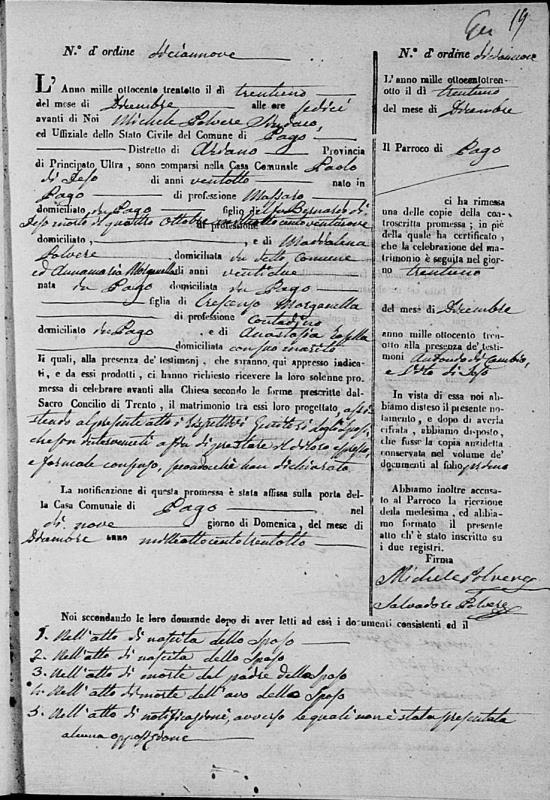 19
N.° d'ordine diciannove
L'Anno mille ottocento trentotto il dì trentuno
del mese di Dicembre alle ore sedici
avanti di Noi Michele Polvere Sindaco,
ed Uffiziale dello Stato Civile del Comune di Pago
Distretto di Ariano Provincia
di Principato Ultra, sono comparsi nella Casa Comunale Paolo
di Jeso di anni ventotto nato in
Pago di professione Massaro
domiciliato in Pago figlio del fu Bernardo di
Jeso morto il quattro Ottobre mille otto cento ventinove
di professione
domiciliato , e di Maddalena
Polvere , domiciliata in detto Comune
ed Annamaria Morganella di anni ventidue
nata in Pago domiciliata in Pago
figlia di Crescenzo Morganella
di professione contadino
domiciliato in Pago , e di Anastasia
domiciliata con suo marito
I quali, alla presenza de' testimonj, che saranno qui appresso indica-
ti, e da essi prodotti, ci hanno richiesto ricevere la loro solenne pro-
messa di celebrare avanti alla Chiesa secondo le forme prescritte dal
Sacro Concilio di Trento, il matrimonio tra essi loro progettato, assi
stendo al presente atto i rispettivi Genitori degli sposi,
che son intervenuti affin di prestare il di loro espresso,
e formale consenso, siccome han dichiarato
La notificazione di questa promessa è stata affissa sulla porta del-
la Casa Comunale di Pago nel
dì nove giorno di Domenica, del mese di
Dicembre anno mille otto cento trentotto
Noi secondando le loro domande dopo di aver letti ad essi i documenti consistenti ed il
1. Nell'atto di nascita dello Sposo
2. Nell'atto di nascita dello Sposo
3. Nell'atto di morte del padre dello Sposo
4. Nell'atto di morte dell'avo dello Sposo
5. Nell'atto di notificazione, avverso le quali non è stata presentata
alcuna opposizione
N.° d'ordine diciannove
L'anno mille ottocentotren-
totto il dì trentuno
del mese di Dicembre
Il Parroco di Pago
ci ha rimessa
una delle copie della con-
troscritta promessa; in piè
della quale ha certificato,
che la celebrazione del ma-
trimonio è seguita nel gior-
no trentuno
del mese di Dicembre
anno mille ottocento tren-
totto alla presenza de' testi-
moni Antonio
e Vito di Jeso
In vista di essa noi ab-
biamo disteso il presente no-
tamento, e dopo di averla
cifrata, abbiamo disposto,
che fusse la copia anzidetta
conservata nel volume de'
documenti al foglio primo
Abbiamo inoltre accusa-
to al Parroco la ricezione
della medesima, ed abbia-
mo formato il presente
atto ch'è stato inscritto su
i due registri.
Firma
Michele Polvere
Salvadore Polvere